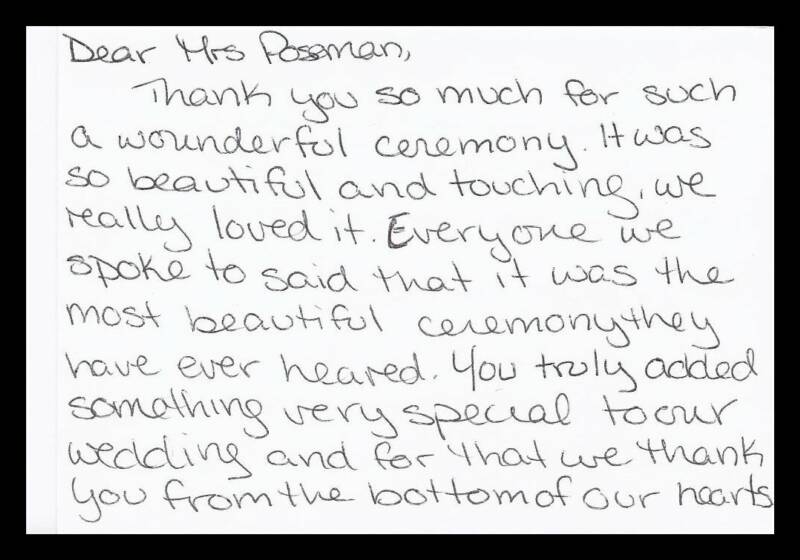 Dear Mrs Poseman,
Thank you so much for such
a wounderful ceremony. It was
so beautiful and touching, we
really loved it. Everyone we
spoke to said that it was the
most beautiful ceremony they
have ever heared. You truly added
somathing very special to our
wedding and for that we thank
you from the bottom of our hearts